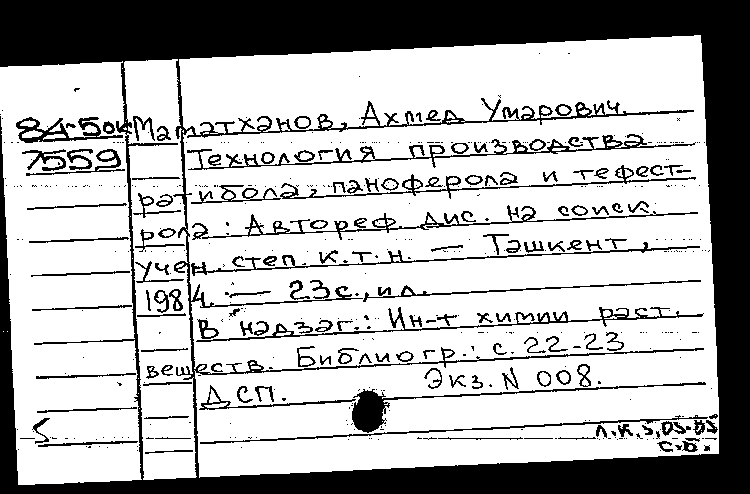 84-5ок Маматханов, Ахмед Умарович.
7559 Технология производства
ратибола, паноферола и тефест-
рола: Автореф. дис. на соиск.
учен. степ. к.т.н. — Ташкент,
1984. — 23с., ил.
В надзаг.: Ин-т химии раст.
веществ. Библиогр.: с. 22-23
ДСП. Экз. N 008.
С.Б.